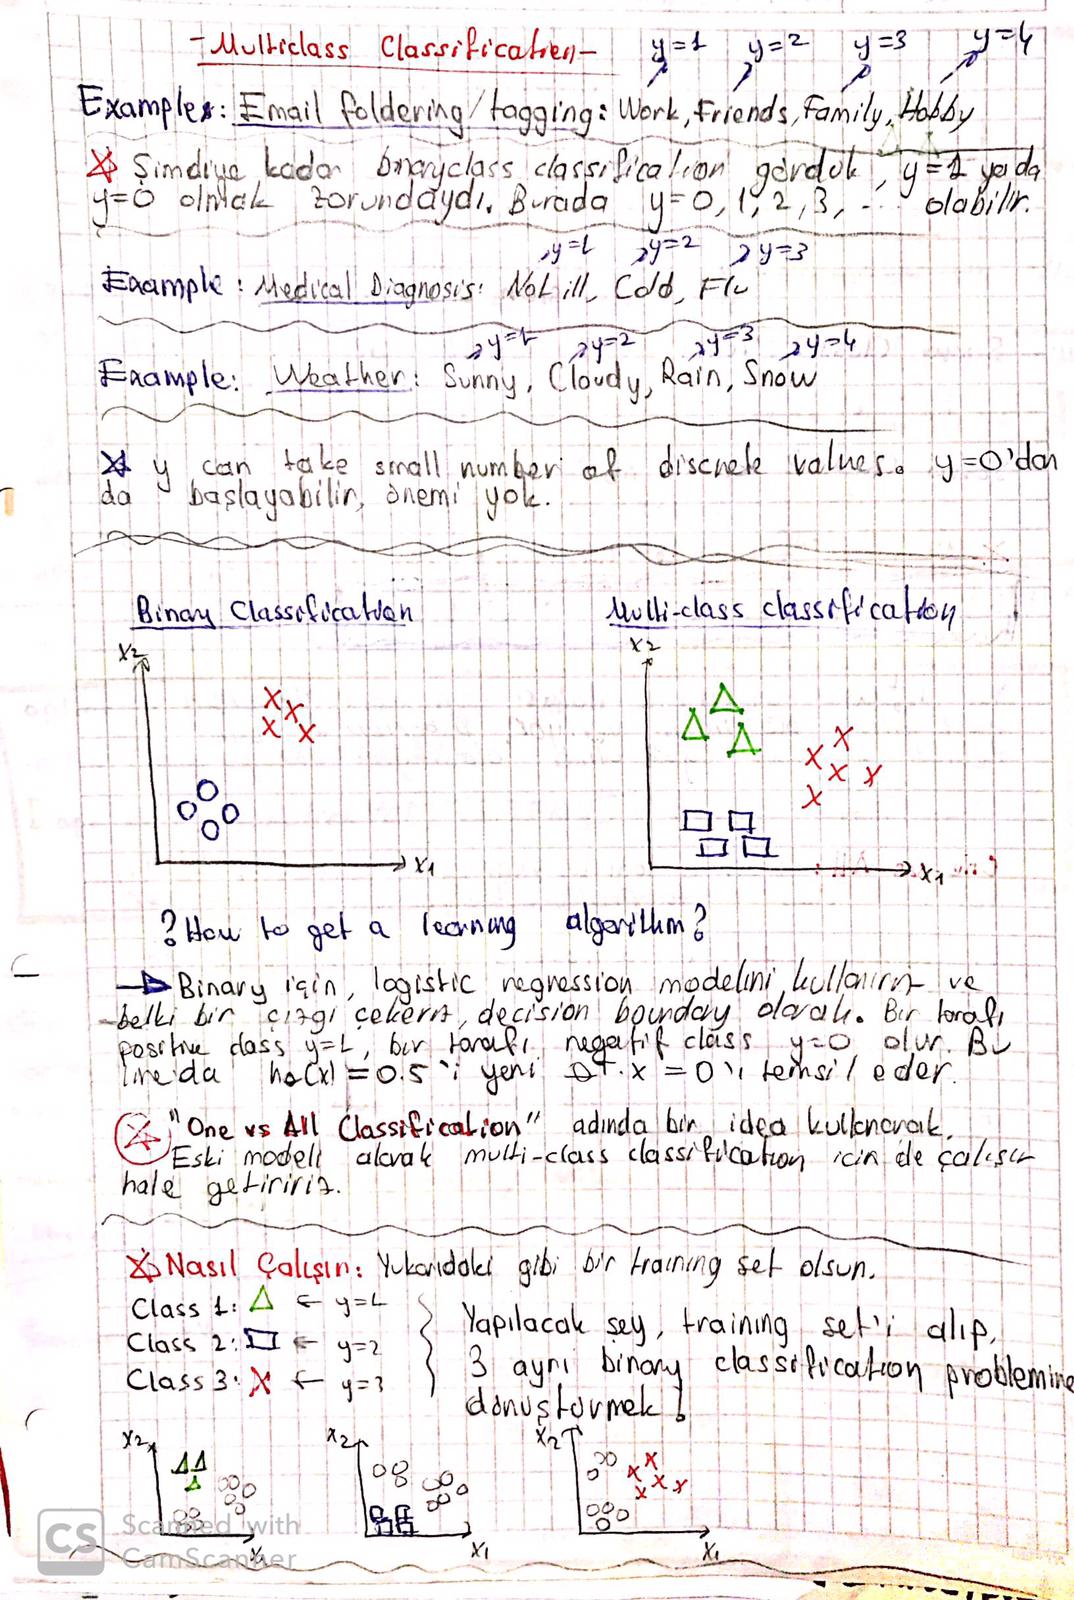 -Multiclass Classification-
y=1 y=2 y=3 y=4
Example: Email foldering/tagging: Work, Friends, Family, Hobby
Şimdiye kadar binaryclass classification gördük, y=1 ya da
y=0 olmak zorundaydı. Burada y=0, 1, 2, 3, ... olabilir.
y=1 y=2 y=3
Example: Medical Diagnosis: Not ill, Cold, Flu
y=1 y=2 y=3 y=4
Example: Weather: Sunny, Cloudy, Rain, Snow
y can take small number of discrete values. y=0'dan
da başlayabilir, önemi yok.
Binary Classification Multi-class classification
x2 x2
x1 x1
? How to get a learning algorithm?
Binary için, logistic regression modelini kullanırız ve
belki bir çizgi çekeriz, decision boundary olarak. Bir tarafı
positive class y=1, bir tarafı negatif class y=0 olur. Bu
line'da hθ(x) = 0.5'i yeni θT.x = 0'ı temsil eder.
"One vs All Classification" adında bir idea kullanarak,
Eski modeli alarak multi-class classification icin de çalışır
hale getiririz.
Nasıl Çalışın: Yukarıdaki gibi bir training set olsun.
Class 1: △ ← y=1
Class 2: ▭ ← y=2
Class 3: X ← y=3
Yapılacak şey, training set'i alıp,
3 ayrı binary classification problemine
dönüştürmek!
x2 x2 x2
x1 x1 x1
CS Scanned with
CamScanner